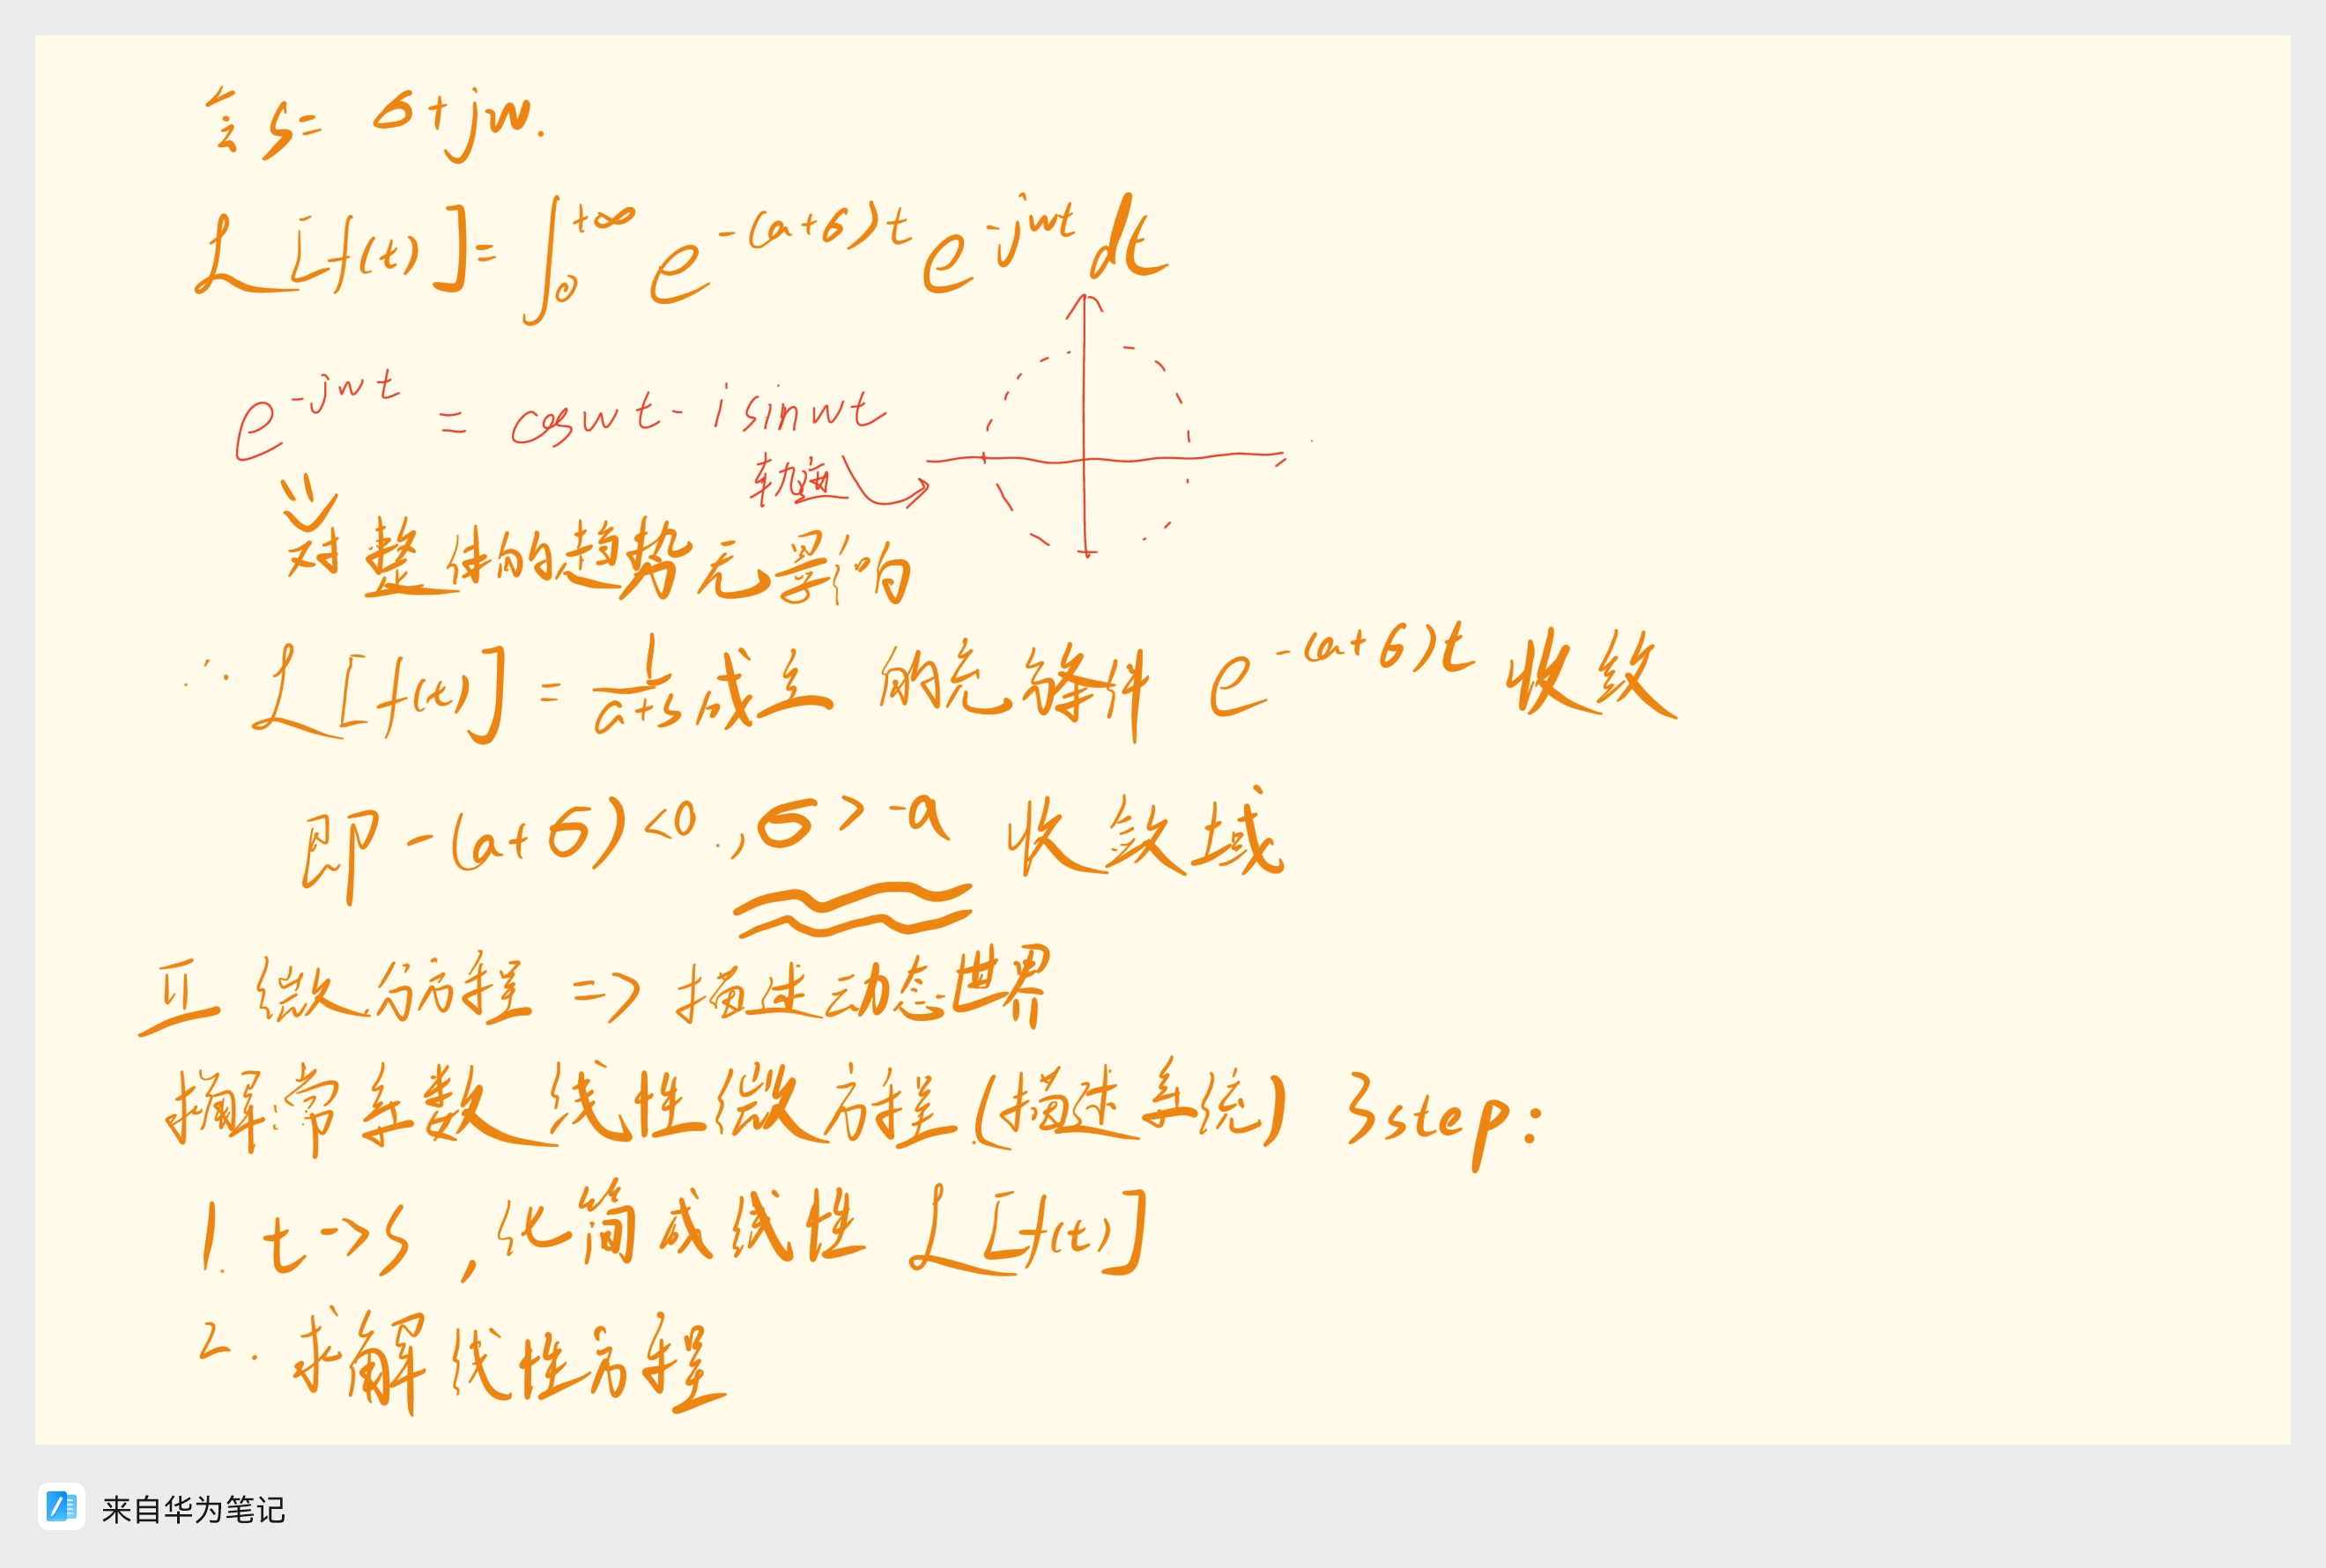 令 s = σ+jw.
L[f(t)] = ∫₀^{+∞} e^{-(a+σ)t} e^{-jwt} dt
e^{-jwt} = coswt - i sinwt
轨迹
对整体的趋势无影响
∴ L[f(t)] = 1/(a+s) 成立的条件 e^{-(a+σ)t} 收敛
即 -(a+σ)<0., σ>-a 收敛域
II 微分方程 => 描述动态世界
求解常系数线性微分方程(描述系统) 3step:
1. t->s , 化简成线性 L[f(t)]
2. 求解线性方程
来自华为笔记